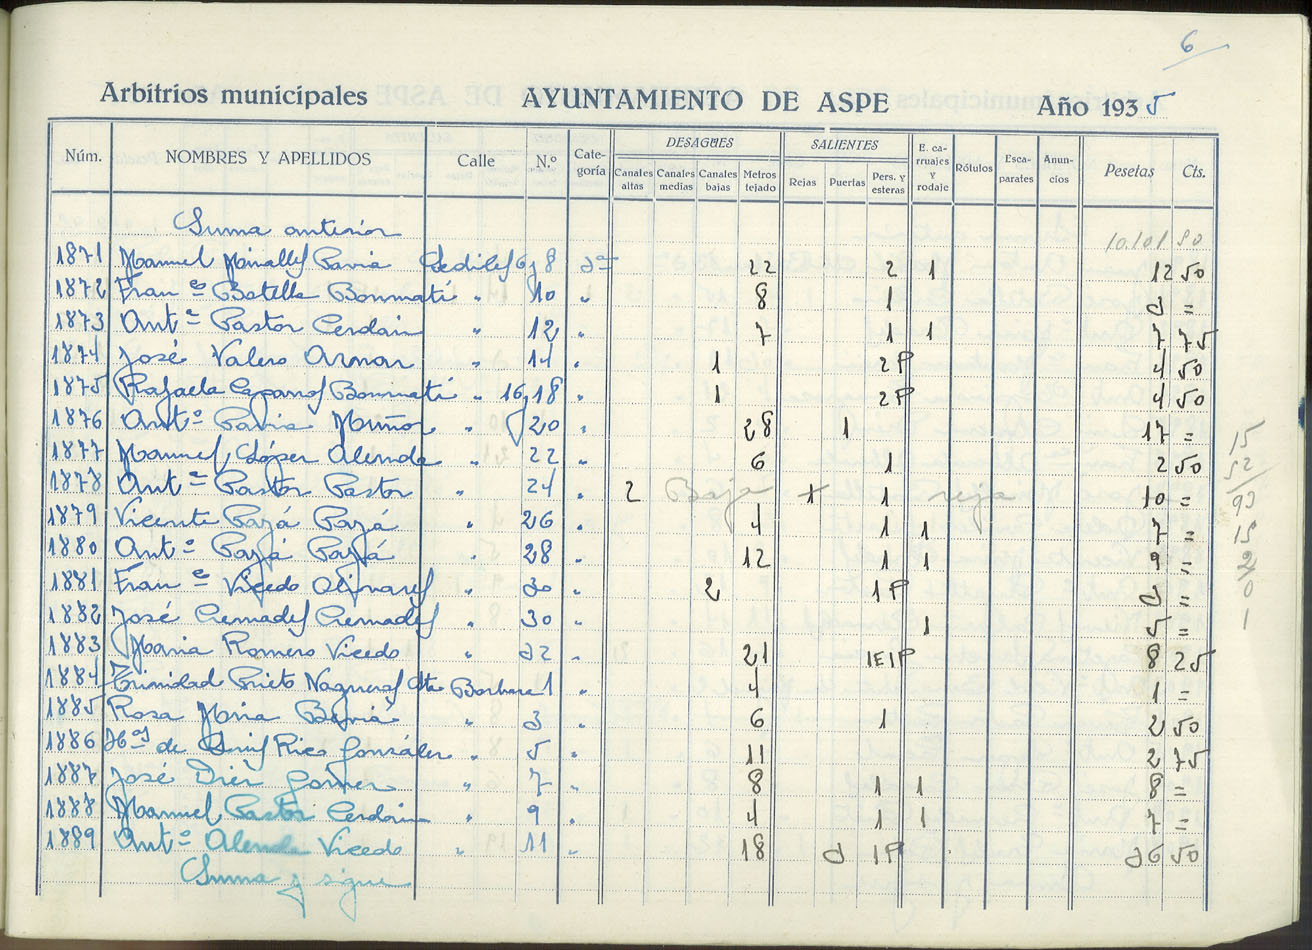 6
Arbitrios municipales AYUNTAMIENTO DE ASPE Año 1935
Núm. NOMBRES Y APELLIDOS Calle N.º Cate-goría DESAGÜES Canales altas Canales medias Canales bajas Metros tejado SALIENTES Rejas Puertas Pers. y esteras E. ca-rruajes y rodaje Rótulos Esca-parates Anun-cios Pesetas Cts.
Suma anterior 10.101 90
1871 Manuel Mirallef Pavia 6,8 3ª 22 2 1 12 50
1872 Franco Botella Bonmatí " 10 " 8 1 3 =
1873 Antº Pastor Cerdán " 12 " 7 1 1 7 75
1874 José Valero Aznar " 14 " 1 2P 4 50
1875 Rafaela Bonmatí " 16,18 " 1 2P 4 50
1876 Antº Pavia Muñoz " 20 " 28 1 17 =
1877 Manuel López Alenda " 22 " 6 1 2 50
1878 Antº Pastor Pastor " 24 " 2 Baja + 1 reja 10 =
1879 Vicente Payá Payá " 26 " 4 1 1 7 =
1880 Antº Payá Payá " 28 " 12 1 1 9 =
1881 Franco Vicedo " 30 " 2 1P 3 =
1882 José Cremades Cremades " 30 " 1 5 =
1883 Maria Romero Vicedo " 32 " 21 1E1P 8 25
1884 Trinidad Prieto Sta Barbara 1 " 4 1 =
1885 Rosa Mira " 3 " 6 1 2 50
1886 Hos de Luis Rico González " 5 " 11 2 75
1887 José Diez Gomez " 7 " 8 1 1 8 =
1888 Manuel Pastor Cerdán " 9 " 4 1 1 7 =
1889 Antº Alenda Vicedo " 11 " 18 3 1P 36 50
Suma y sigue
15
52
93
15
2
0
1